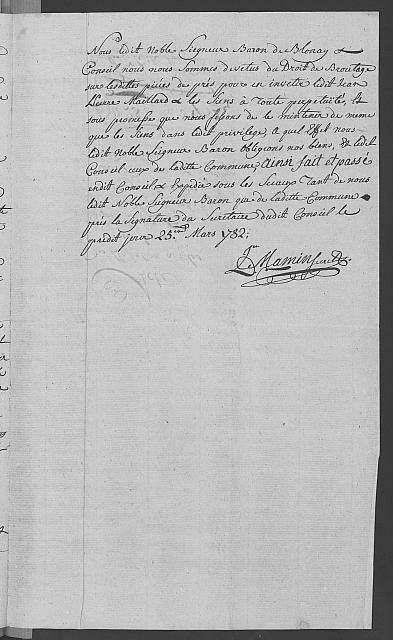 Nous ledit Noble Seigneur Baron de Blonay &
Conseil nous nous Sommes devetus du Droit de Broutage
sur lesdittes pièces de prés pour en investir ledit Jean
Pierre Maillard & les Siens à Toute perpetuité, &
sous promesse que nous fesons de le maintenir de meme
que les Siens dans ledit privilege, a quel Effet nous
ledit Noble Seigneur Baron Obligeons nos biens, Et ledit
Conseil ceux de ladite Commune, ainsi fait et passé
endit Conseil & Expedié sous les Sceaux Tant de nous
ledit Noble Seigneur Baron que de ladite Commune
près la Signature du Secretaire dudit Conseil le
predit jour 25 Mars 1782;
Mamin